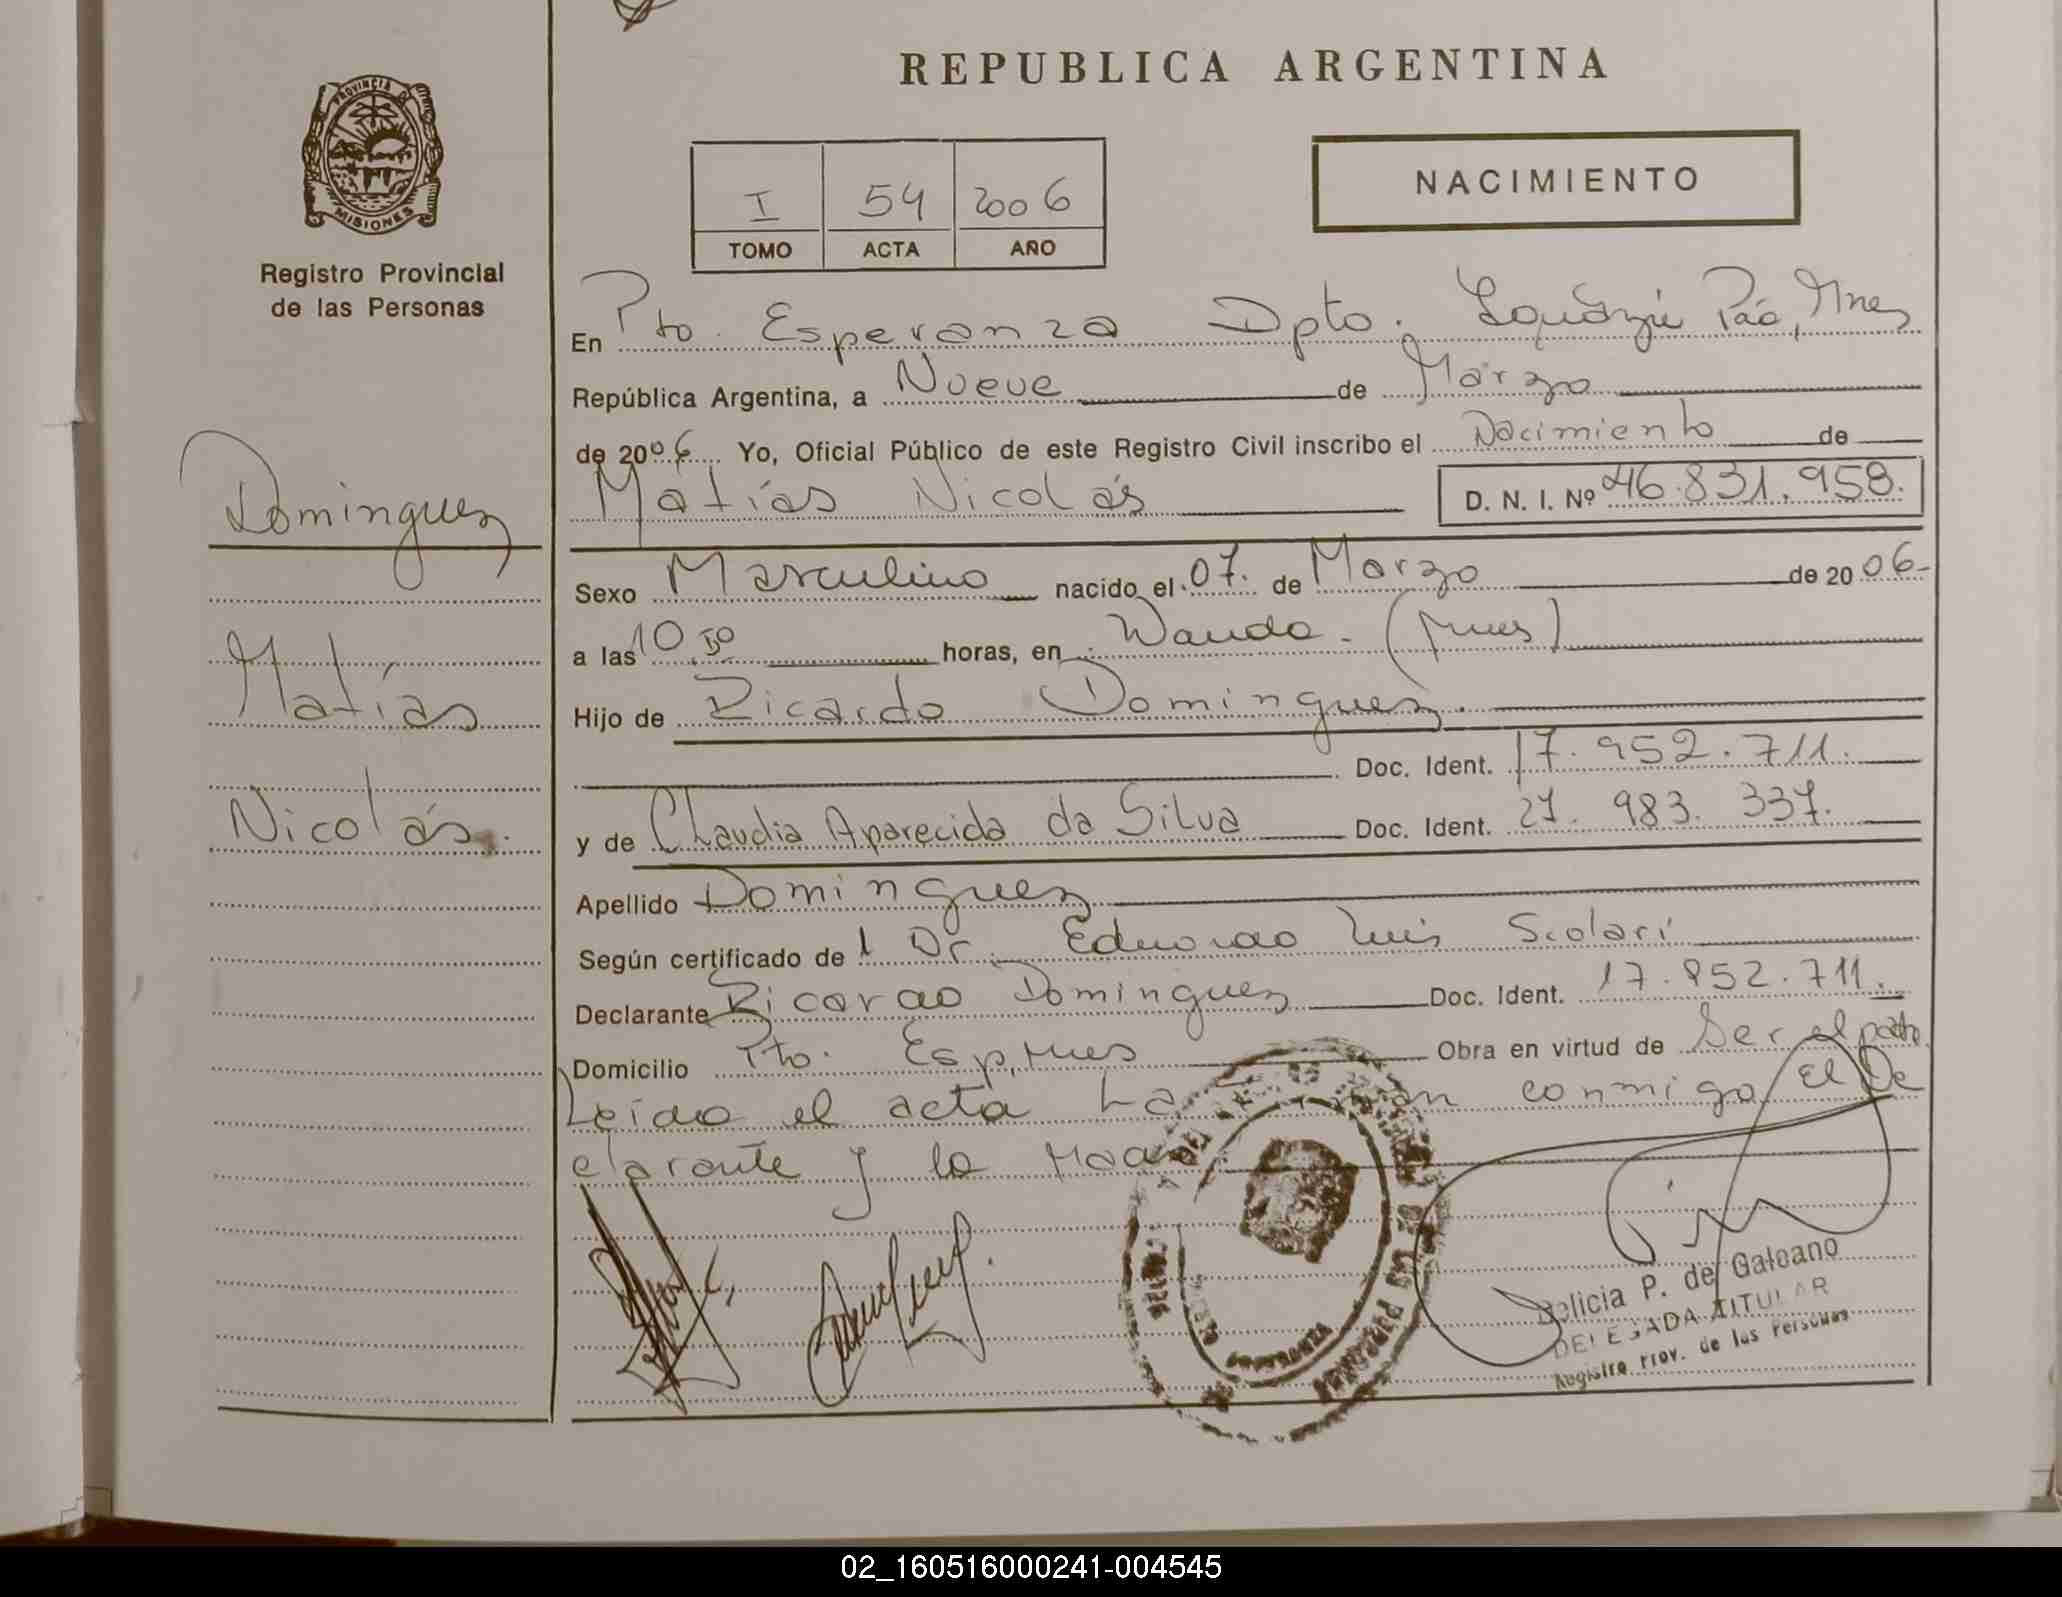 REPUBLICA ARGENTINA
PROVINCIA DE
MISIONES
Registro Provincial
de las Personas
I 54 2006
TOMO ACTA AÑO
NACIMIENTO
En Pto. Esperanza Dpto. Iguazú Mnes
República Argentina, a Nueve de Marzo
de 2006 Yo, Oficial Público de este Registro Civil inscribo el Nacimiento de
Matías Nicolás D. N. I. Nº 46.831.958.
Dominguez
Matías
Nicolás.
Sexo Masculino nacido el 07. de Marzo de 2006-
a las 10 50 horas, en Wanda - (Mnes)
Hijo de Ricardo Dominguez.
Doc. Ident. 17.952.711.
y de Claudia Aparecida da Silva Doc. Ident. 27. 983. 337.
Apellido Dominguez
Según certificado de l Dr. Eduardo Luis Scolari
Declarante Ricardo Dominguez Doc. Ident. 17.952.711.
Domicilio Pto. Esp, Mnes Obra en virtud de Ser el padre
Leída el acta La conmigo, El De
clarante y la Madre
DE LAS PERSONAS
ESPERANZA
Delicia P. de Galeano
DELEGADA TITULAR
Registro Prov. de las Personas
02_160516000241-004545